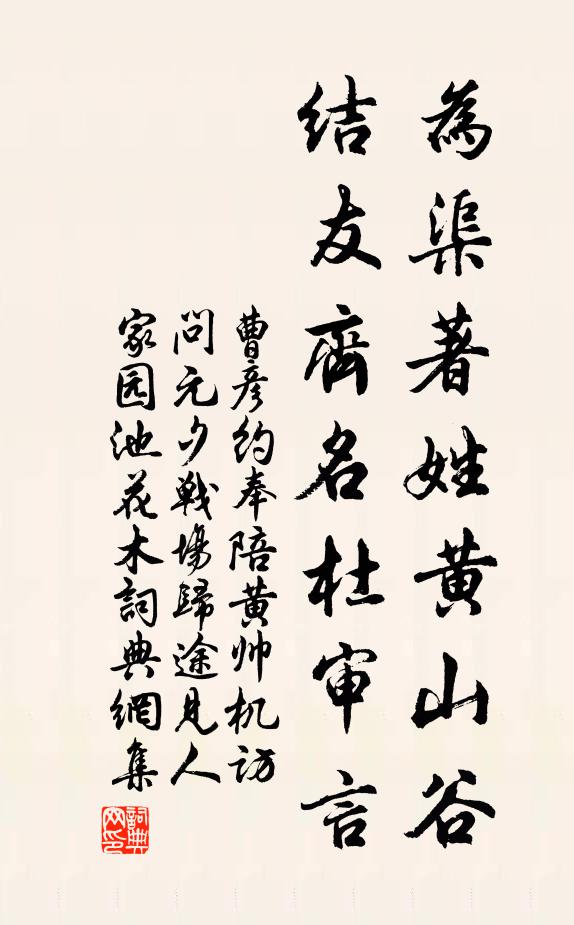 為渠著姓黄山谷
结友齊名杜审言
曹彦約奉陪黄帅机访
問元夕戰場歸途見人
家园池花木詞典網集
詞典网印